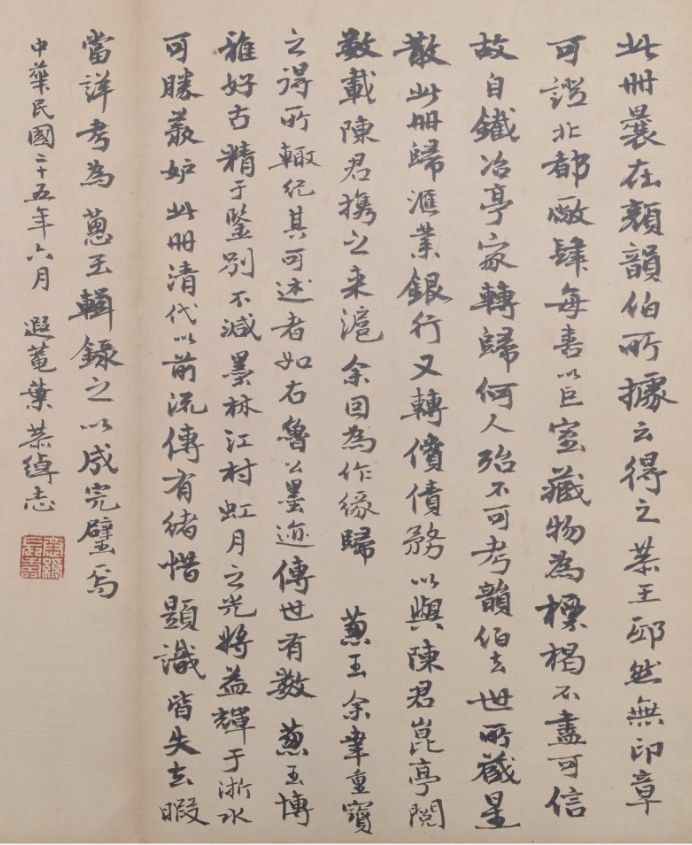 此冊曩在顏韻伯所據云得之恭王邸然無印章
可證北都廠肆每喜以巨室藏物為標榜不盡可信
故自鐵冶亭家轉歸何人殆不可考韻伯去世所藏星
散此冊歸滙業銀行又轉償債務以與陳君崑亭閱
數載陳君携之来滬余因為作緣歸 蔥玉余幸重寶
之得所輙紀其可述者如右魯公墨迹傳世有數 蔥玉博
雅好古精于鑒別不減墨林江村虹月之光將益輝于浙水
可勝羨妒此冊清代以前流傳有緒惜題識皆失去暇
當詳考為蔥玉輯錄之以成完璧焉
中華民國二十五年六月 遐菴葉恭綽志